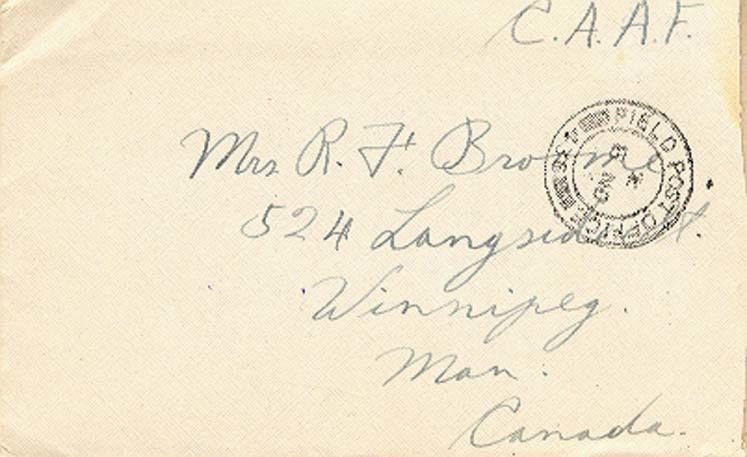 C.A.A.F.
Mrs R. F. Broome
FIELD POST OFFICE
524 Langside St.
Winnipeg.
Man.
Canada.